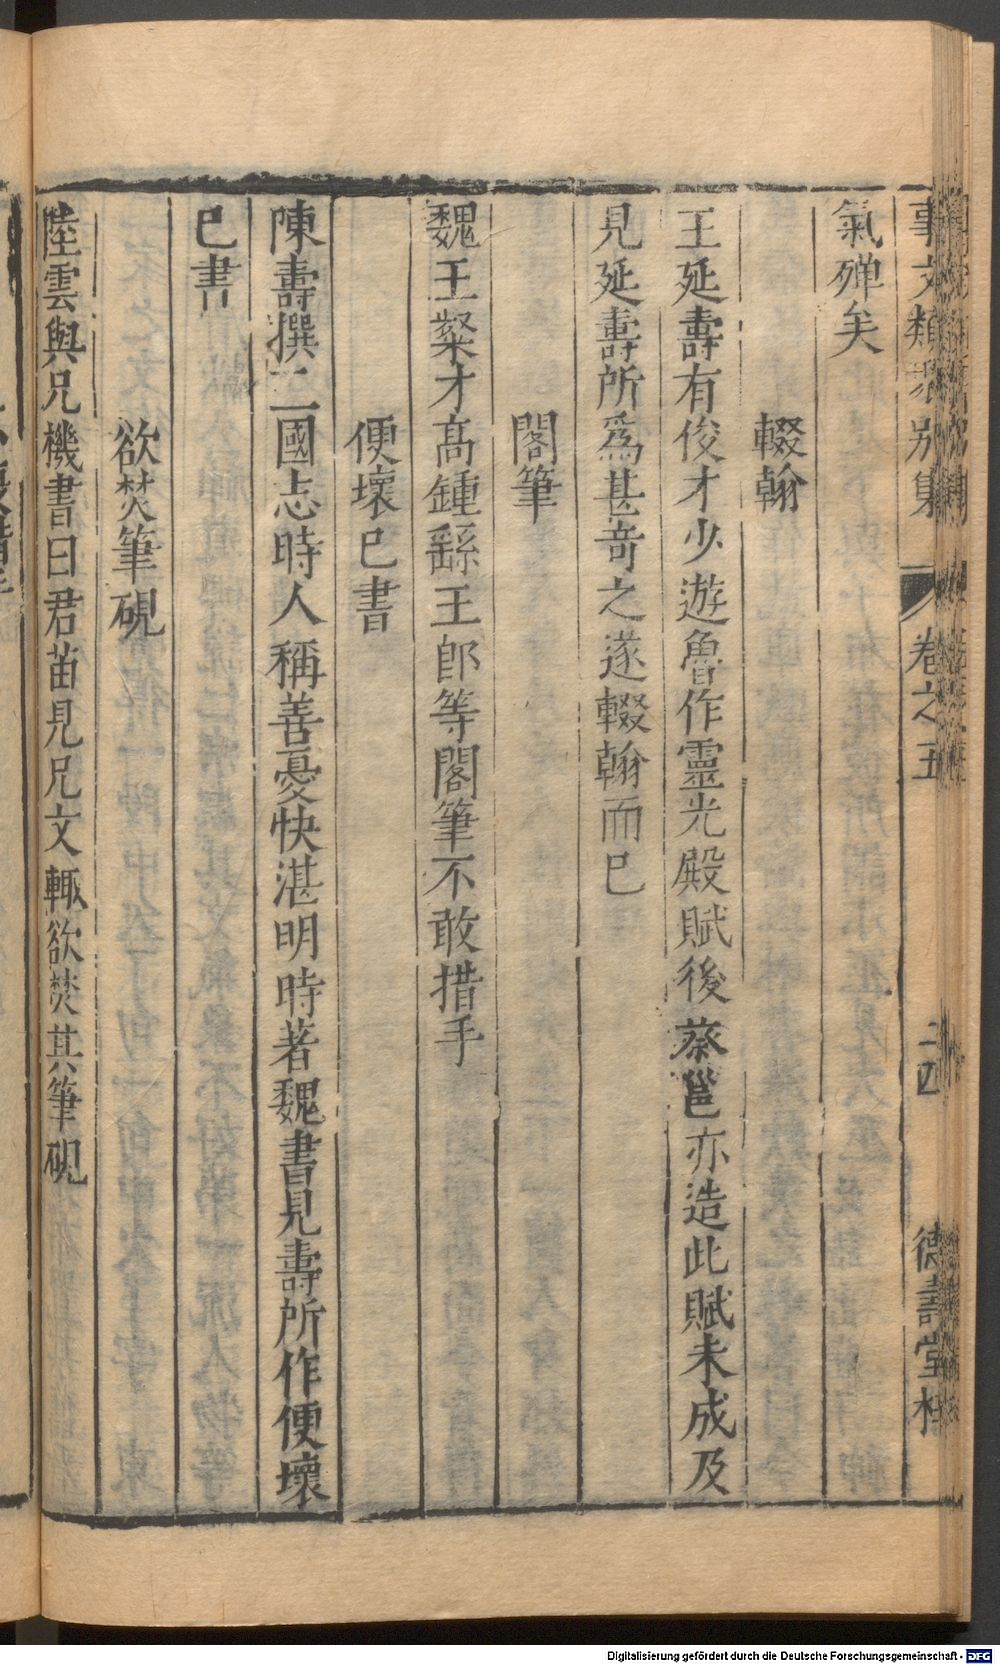 事文類聚別集
卷之五
二四
德壽堂梓
氣殫矣
輟翰
王延壽有俊才少遊魯作靈光殿賦後蔡邕亦造此賦未成及
見延壽所爲甚奇之遂輟翰而已
閣筆
魏王粲才高鍾繇王郎等閣筆不敢措手
便壞已書
陳壽撰二國志時人稱善憂快湛明時著魏書見壽所作便壞
已書
欲焚筆硯
陸雲與兄機書曰君苗見兄文輒欲焚其筆硯
Digitalisierung gefördert durch die Deutsche Forschungsgemeinschaft - DFG